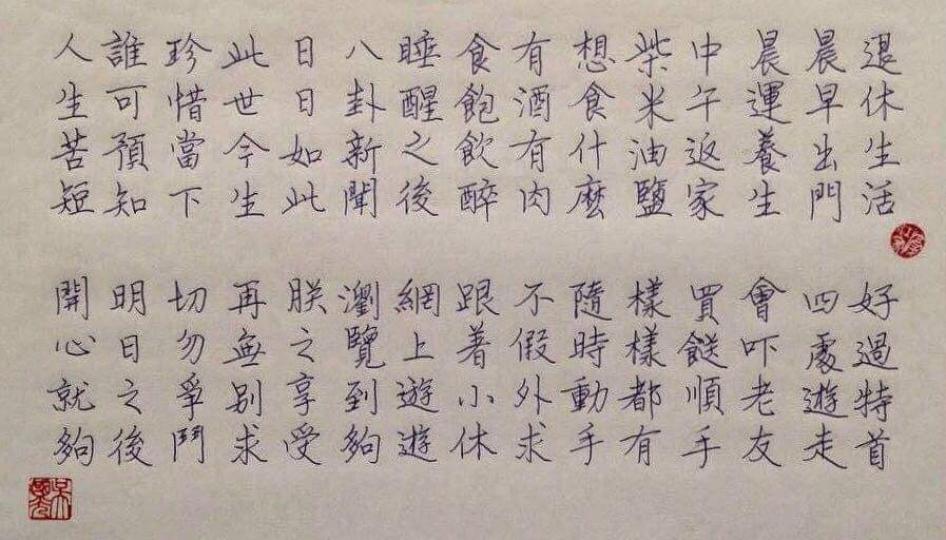 退休生活 好過特首
晨早出門 四處遊走
晨運養生 會吓老友
中午返家 買餸順手
柴米油鹽 樣樣都有
想食什麼 隨時動手
有酒有肉 不假外求
食飽飲醉 跟着小休
睡醒之後 網上遊遊
八卦新聞 瀏覽到夠
日日如此 朕之享受
此世今生 再無别求
珍惜當下 切勿爭鬥
誰可預知 明日之後
人生苦短 開心就夠